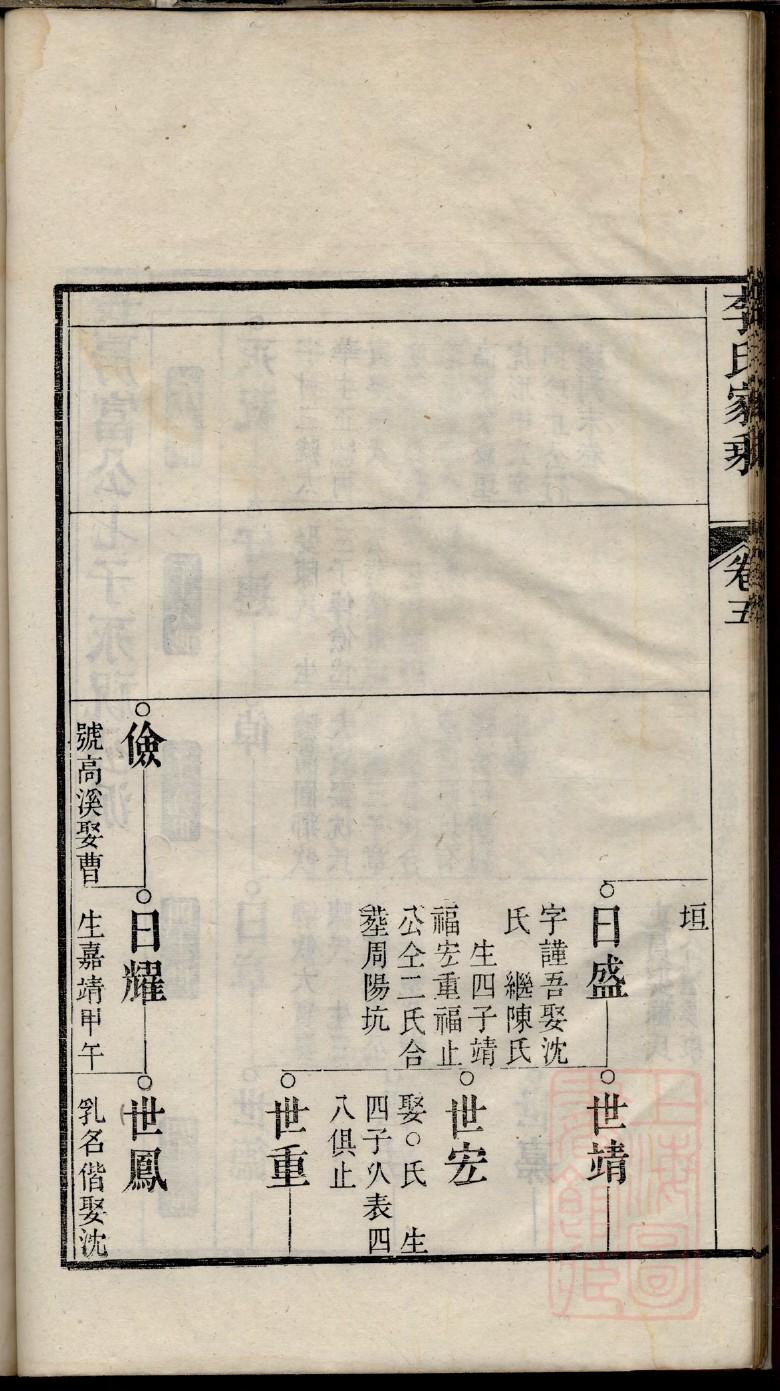 李氏家乘
卷五
垣
日盛
字謹吾娶沈
氏 繼陳氏
生四子靖
福宏重福止
公仝二氏合
塟周陽坑
世靖
世宏
娶○氏 生
四子 表四
八俱止
世重
儉
號高溪娶曹
日耀
生嘉靖甲午
世鳳
乳名偕娶沈
上海圖書館藏